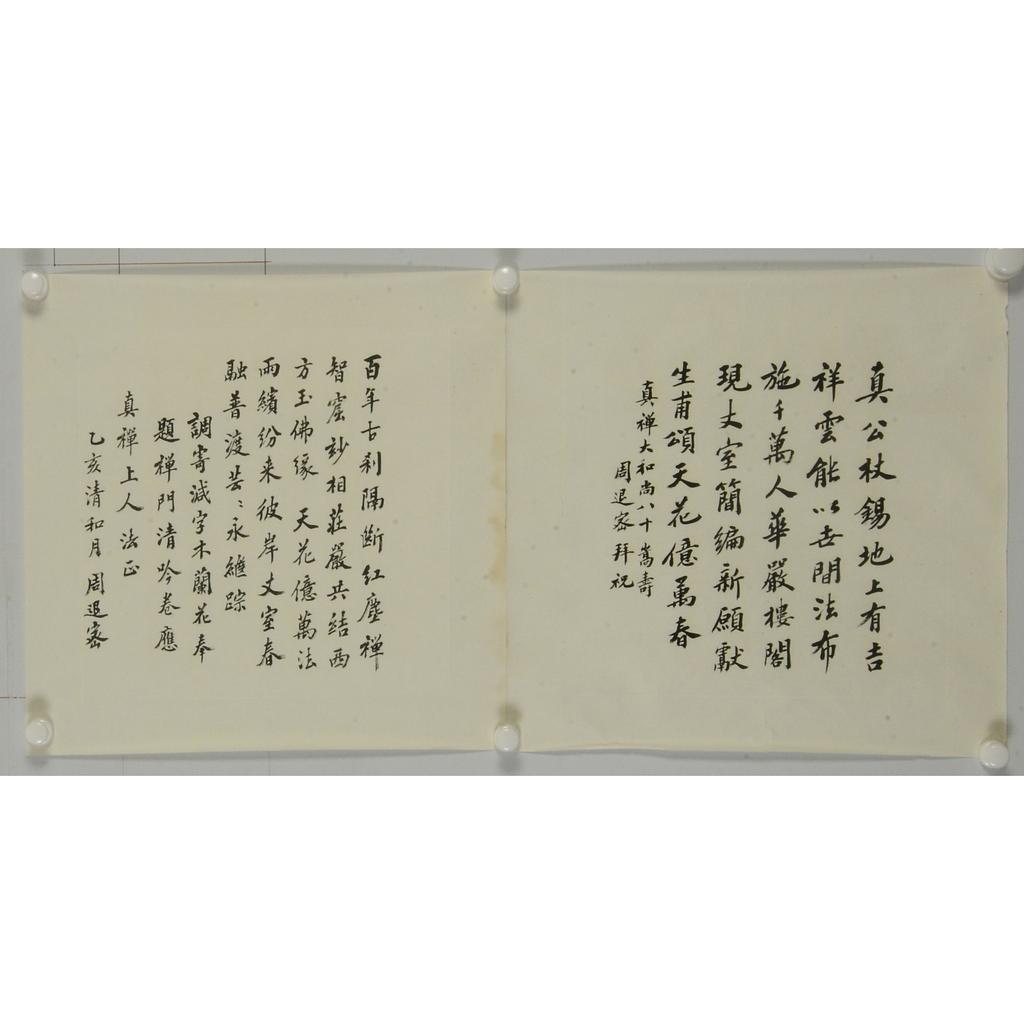 真公杖錫地上有吉
祥雲能以世間法布
施千萬人華嚴樓閣
現丈室簡編新願獻
生甫頌天花億萬春
真禪大和尚八十嵩壽
周退密拜祝
百年古刹隔斷紅塵禅
智窟妙相莊嚴共結西
方玉佛緣天花億萬法
雨繽紛来彼岸丈室春
融普渡芸〻永纏踪
調寄減字木蘭花奉
題禅門清吟卷應
真禪上人法正
乙亥清和月周退密